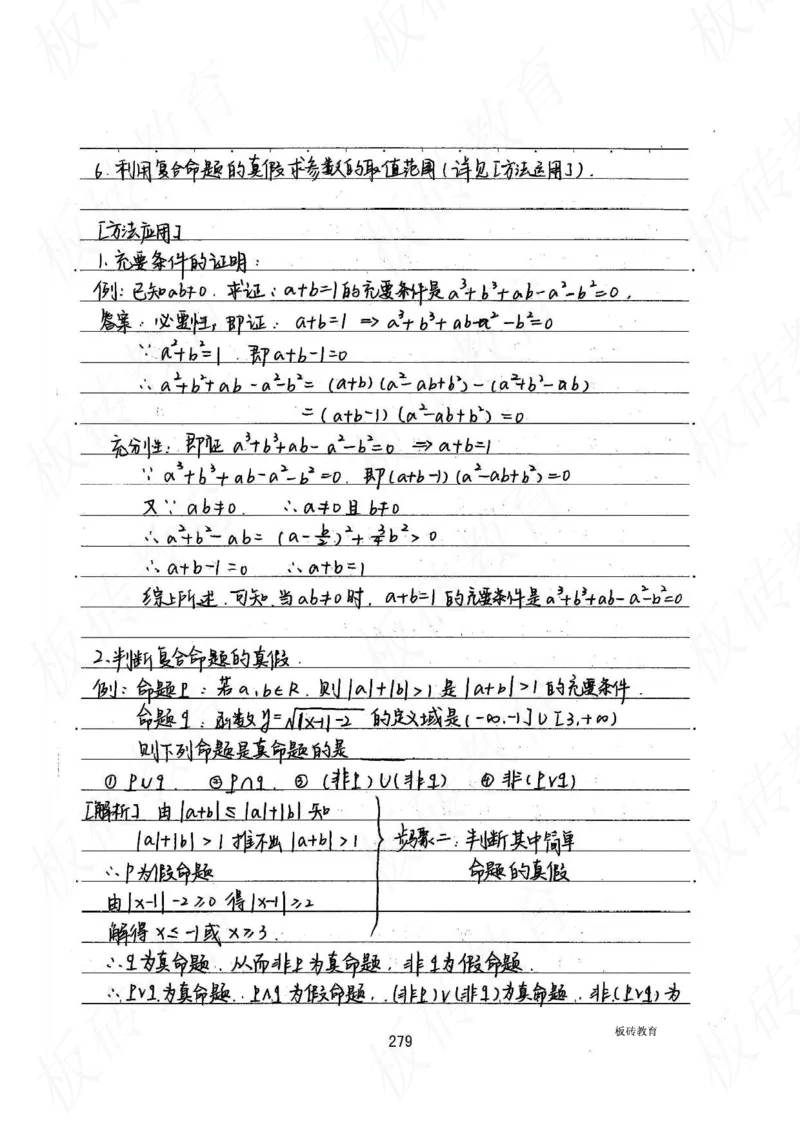 6.利用复合命题的真假求参数的取值范围(详见[方法运用]).
[方法应用]
1.充要条件的证明:
例:已知ab≠0.求证:a+b=1的充要条件是a³+b³+ab-a²-b²=0.
答案:必要性,即证:a+b=1 ⇒ a³+b³+ab-a²-b²=0
∵a²+b²=1.即a+b-1=0
∴a²+b²+ab-a²-b²=(a+b)(a²-ab+b²)-(a²+b²-ab)
=(a+b-1)(a²-ab+b²)=0
充分性:即证a³+b³+ab-a²-b²=0 ⇒a+b=1
∵a³+b³+ab-a²-b²=0.即(a+b-1)(a²-ab+b²)=0
又∵ab≠0. ∴a≠0且b≠0
∴a²+b²-ab=(a-b/2)²+3/4b²>0
∴a+b-1=0 ∴a+b=1
综上所述.可知.当ab≠0时,a+b=1的充要条件是a³+b³+ab-a²-b²=0
2.判断复合命题的真假.
例:命题P:若a,b∈R.则|a|+|b|>1是|a+b|>1的充要条件.
命题q:函数y=√|x-1|-2 的定义域是(-∞,-1]∪[3,+∞)
则下列命题是真命题的是
①P∪q. ②P∩q. ③(非P)∪(非q) ④非(P∨q)
[解析]由|a+b|≤|a|+|b|知
|a|+|b|>1推不出|a+b|>1
步骤二:判断其中简单
命题的真假
∴P为假命题
由|x-1|-2≥0得|x-1|≥2
解得x≤-1或x≥3.
∴q为真命题.从而非P为真命题.非q为假命题.
∴P∨q为真命题.P∩q为假命题.(非P)∨(非q)为真命题.非(P∨q)为
板砖教育
279